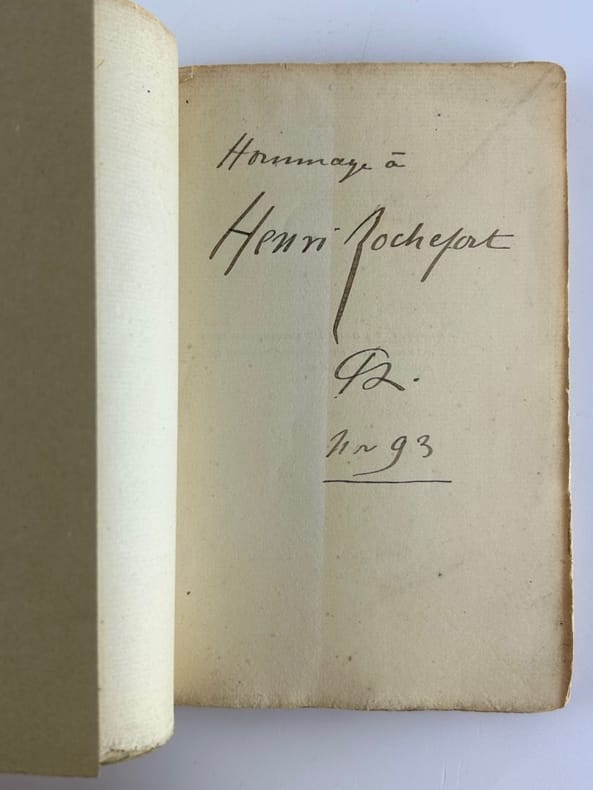 Hommage à
Henri Rochefort
93